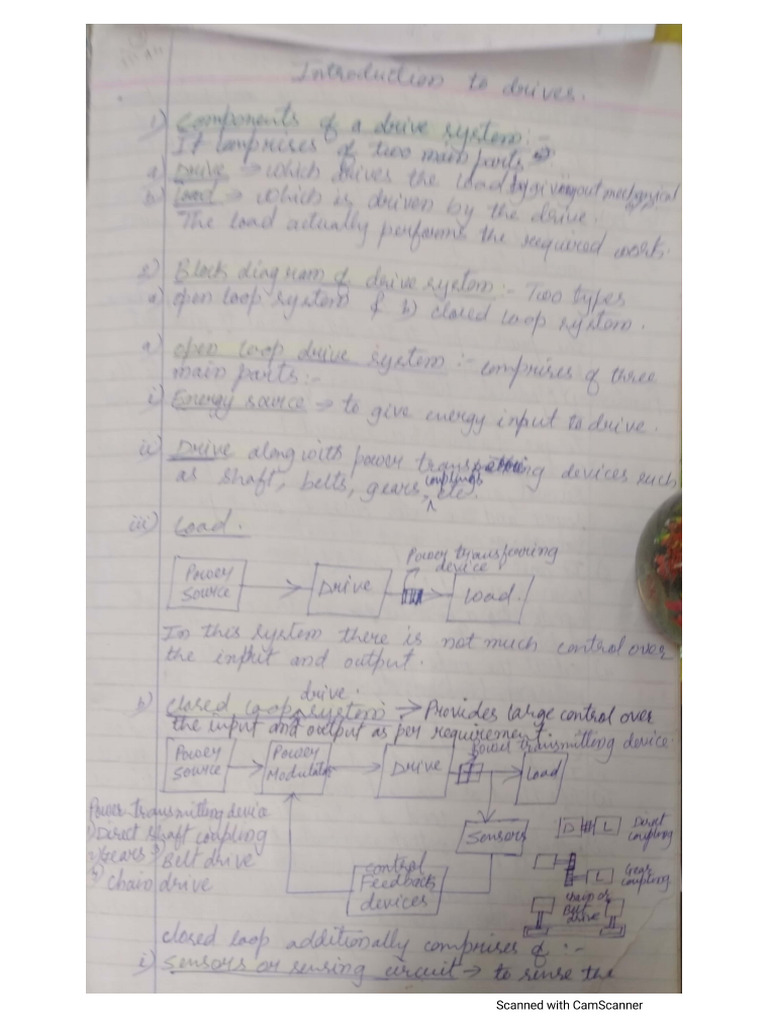 Introduction to drives.
1) Components of a drive system:-
It comprises of two main parts
a) Drive → which drives the load by giving out mechanical
b) Load → which is driven by the drive.
The load actually performs the required work.
2) Block diagram of drive system:- Two types
a) open loop system & b) closed loop system.
a) open loop drive system:- comprises of three
main parts:-
i) Energy source → to give energy input to drive.
ii) Drive along with power devices such
as shaft, belts, gears, couplings etc.
iii) Load.
Power transferring
device
Power
Source
Drive
Load.
In this system there is not much control over
the input and output.
b) closed loop drive system → Provides large control over
the input and output as per requirement.
Power transmitting device
Power
Source
Power
Modulator
Drive
Load
Power transmitting device
1) Direct shaft coupling
2) Gears 3) Belt drive
4) chain drive
Sensors
control
Feedback
devices
D L Direct
coupling
L Gear
coupling
chain or
Belt
drive
closed loop additionally comprises of :-
i) Sensors or sensing circuit → to sense the
Scanned with CamScanner